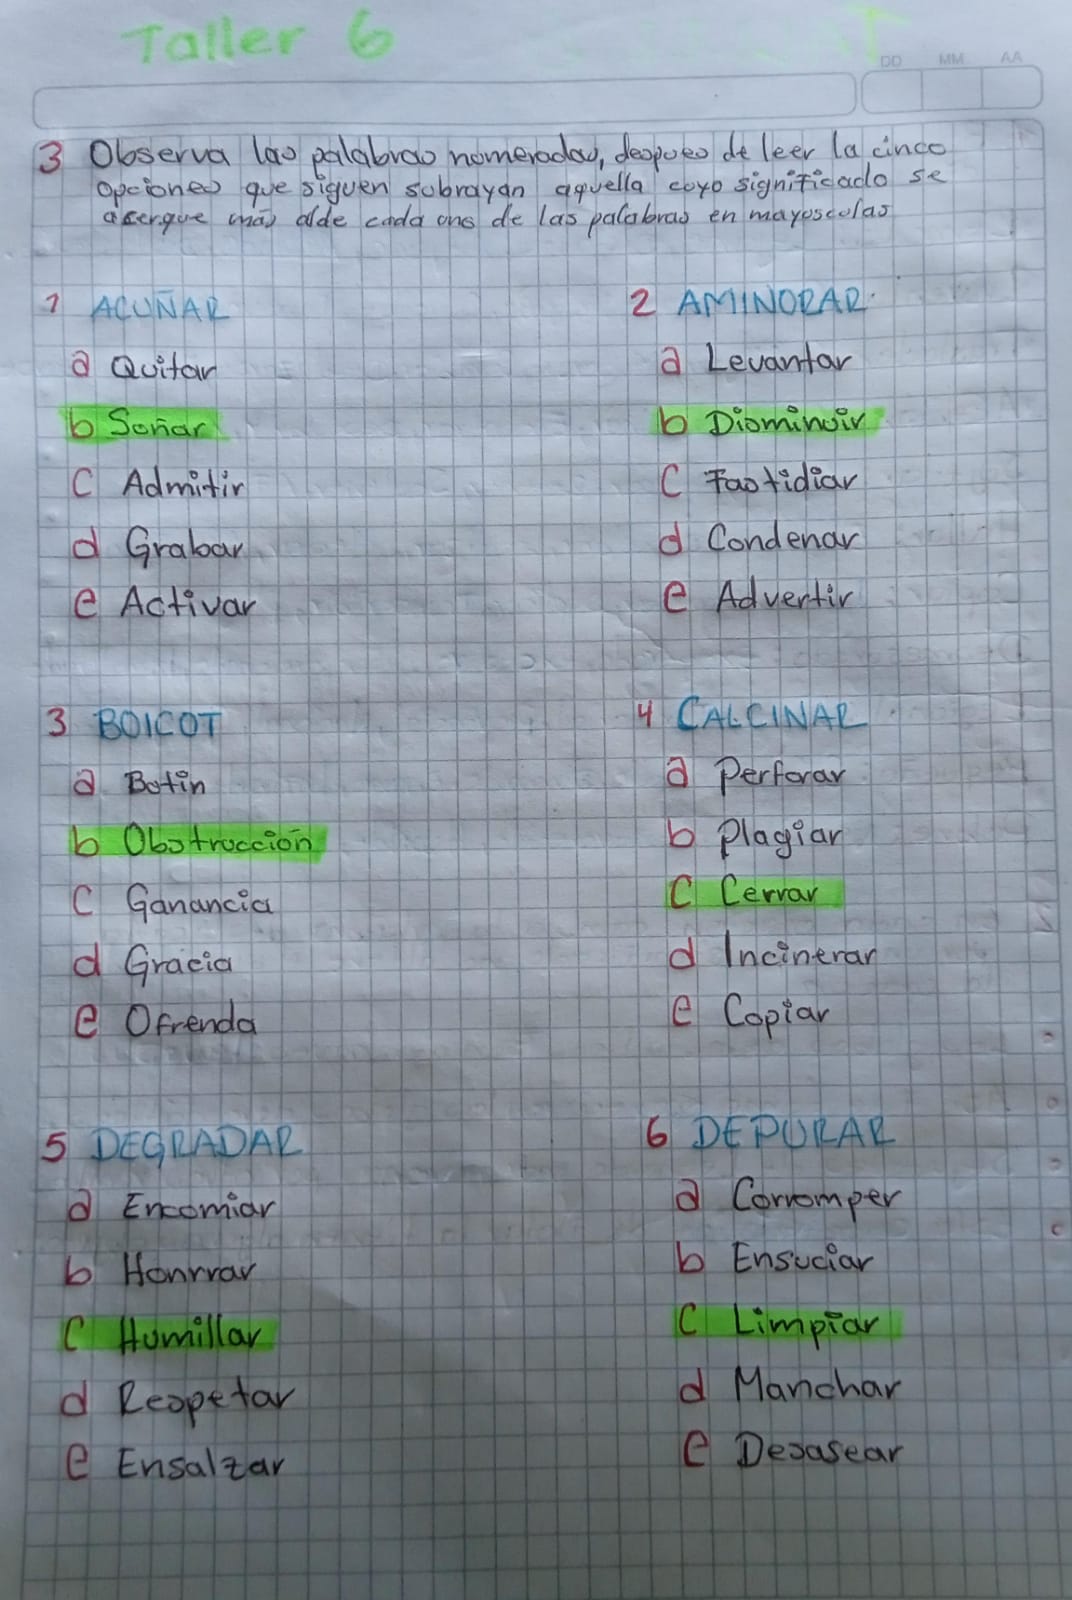 Taller 6
DD MM AA
3 Observa las palabras nomeradas, despues de leer la cinco
opciones que siguen subrayan aquella cuyo significado se
acerque más alde cada una de las palabras en mayusculas
1 ACUÑAR
a Quitar
b Soñar
c Admitir
d Grabar
e Activar
2 AMINORAR
a Levantar
b Disminuir
c Fastidiar
d Condenar
e Advertir
3 BOICOT
a Botin
b Obstrucción
c Ganancia
d Gracia
e Ofrenda
4 CALCINAR
a Perforar
b Plagiar
c Cerrar
d Incinerar
e Copiar
5 DEGRADAR
a Encomiar
b Honrrar
c Humillar
d Respetar
e Ensalzar
6 DEPURAR
a Corromper
b Ensuciar
c Limpiar
d Manchar
e Desasear